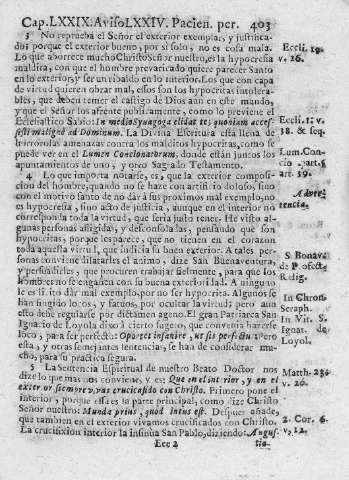 Cap. LXXIX. Aviso LXXIV. Pacien. per. 403
3 No reprueba el Señor el exterior exemplar, y justifica-
do; porque el exterior bueno, por sì solo, no es cosa mala.
Lo que aborrece mucho Christo Señor nuestro, es la hypocresia
maldita, con que el hombre prevaricado quiere parecer Santo
en lo exterior, y ser un ribaldo en lo interior. Los que con capa
de virtud quieren obrar mal, essos son los hypocritas intolera-
bles, que deben temer el castigo de Dios aun en este mundo,
y que el Señor los afrente publicamente, como lo previene el
Eclesiastico Sabio: In medio Synagoga elidat te; quoniam accef-
sisti malignè ad Dominum. La Divina Escritura està llena de
terrorosas amenazas contra los malditos hypocritas, como se
puede ver en el Lumen Concionatorum, donde estàn juntos los
apuntamientos de uno, y otro Sagrado Testamento.
4 Lo que importa notarse, es, que la exterior composi-
cion del hombre, quando no se haze con artificio doloso, sino
con el motivo santo de no dàr à sus proximos mal exemplo, no
es hypocresia, sino acto de justicia, aunque en el interior no
corresponda toda la virtud, que seria justo tener. He visto al-
gunas personas afligidas, y desconsoladas, pensando que son
hypocritas, porque les parece, que no tienen en el corazon
toda aquella virtud, que indicia su buen exterior. A tales per-
sonas conviene dilatarles el animo, dize San Buenaventura,
y persuadirles, que procuren trabajar fielmente, y para què los
hombres no se engañen con su buena exterioridad. A ninguno
le es licito dàr mal exemplo, por no ser hypocrita. Algunos se
han fingido locos, y fatuos, por ocultar la virtud; pero aun
esto debe regularse por dictamen ageno. El gran Patriarca San
Ignacio de Loyola dixo à cierto sugeto, que convenia hazerse
loco, para ser perfecto: Oportet insanire, ut sis perfectus; pero
esta, y otras semejantes sentencias, se han de considerar mu-
cho, para su practica segura.
5 La Sentencia Espiritual de nuestro Beato Doctor nos
dize lo que mas nos conviene, y es: Que en el interior, y en el
exterior siempre vivas crucificado con Christo. Primero pone el
interior, porque essa es la parte principal, como dize Christo
Señor nuestro: Munda prius, quod intus est. Despues añade,
que tambien en el exterior vivamos crucificados con Christo.
La crucifixion interior la insinùa San Pablo, diziendo: Angus-
Eee 2
tia.
Eccli. 19.
v. 26.
Eccli. 1. v.
38. & seq.
Lum. Con-
cio. part. 5
art. 59.
Adver-
tencia.
S. Bonav.
de Profect.
Relig.
In Chron.
Seraph.
In Vit. S.
Ignat. de
Loyol.
Matth. 23.
v. 26.
2. Cor. 6.
v. 12.